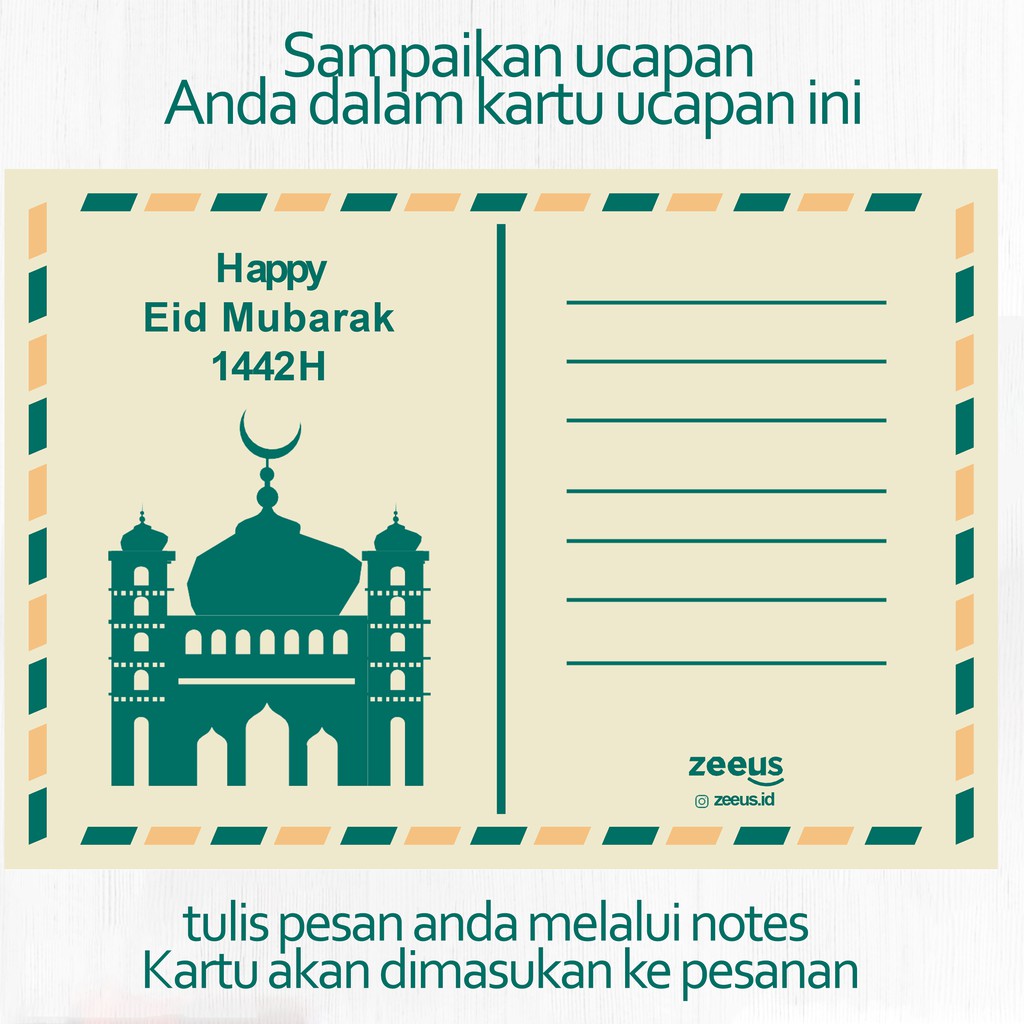 Sampaikan ucapan
Anda dalam kartu ucapan ini
Happy
Eid Mubarak
1442H
zeeus
zeeus.id
tulis pesan anda melalui notes
Kartu akan dimasukan ke pesanan